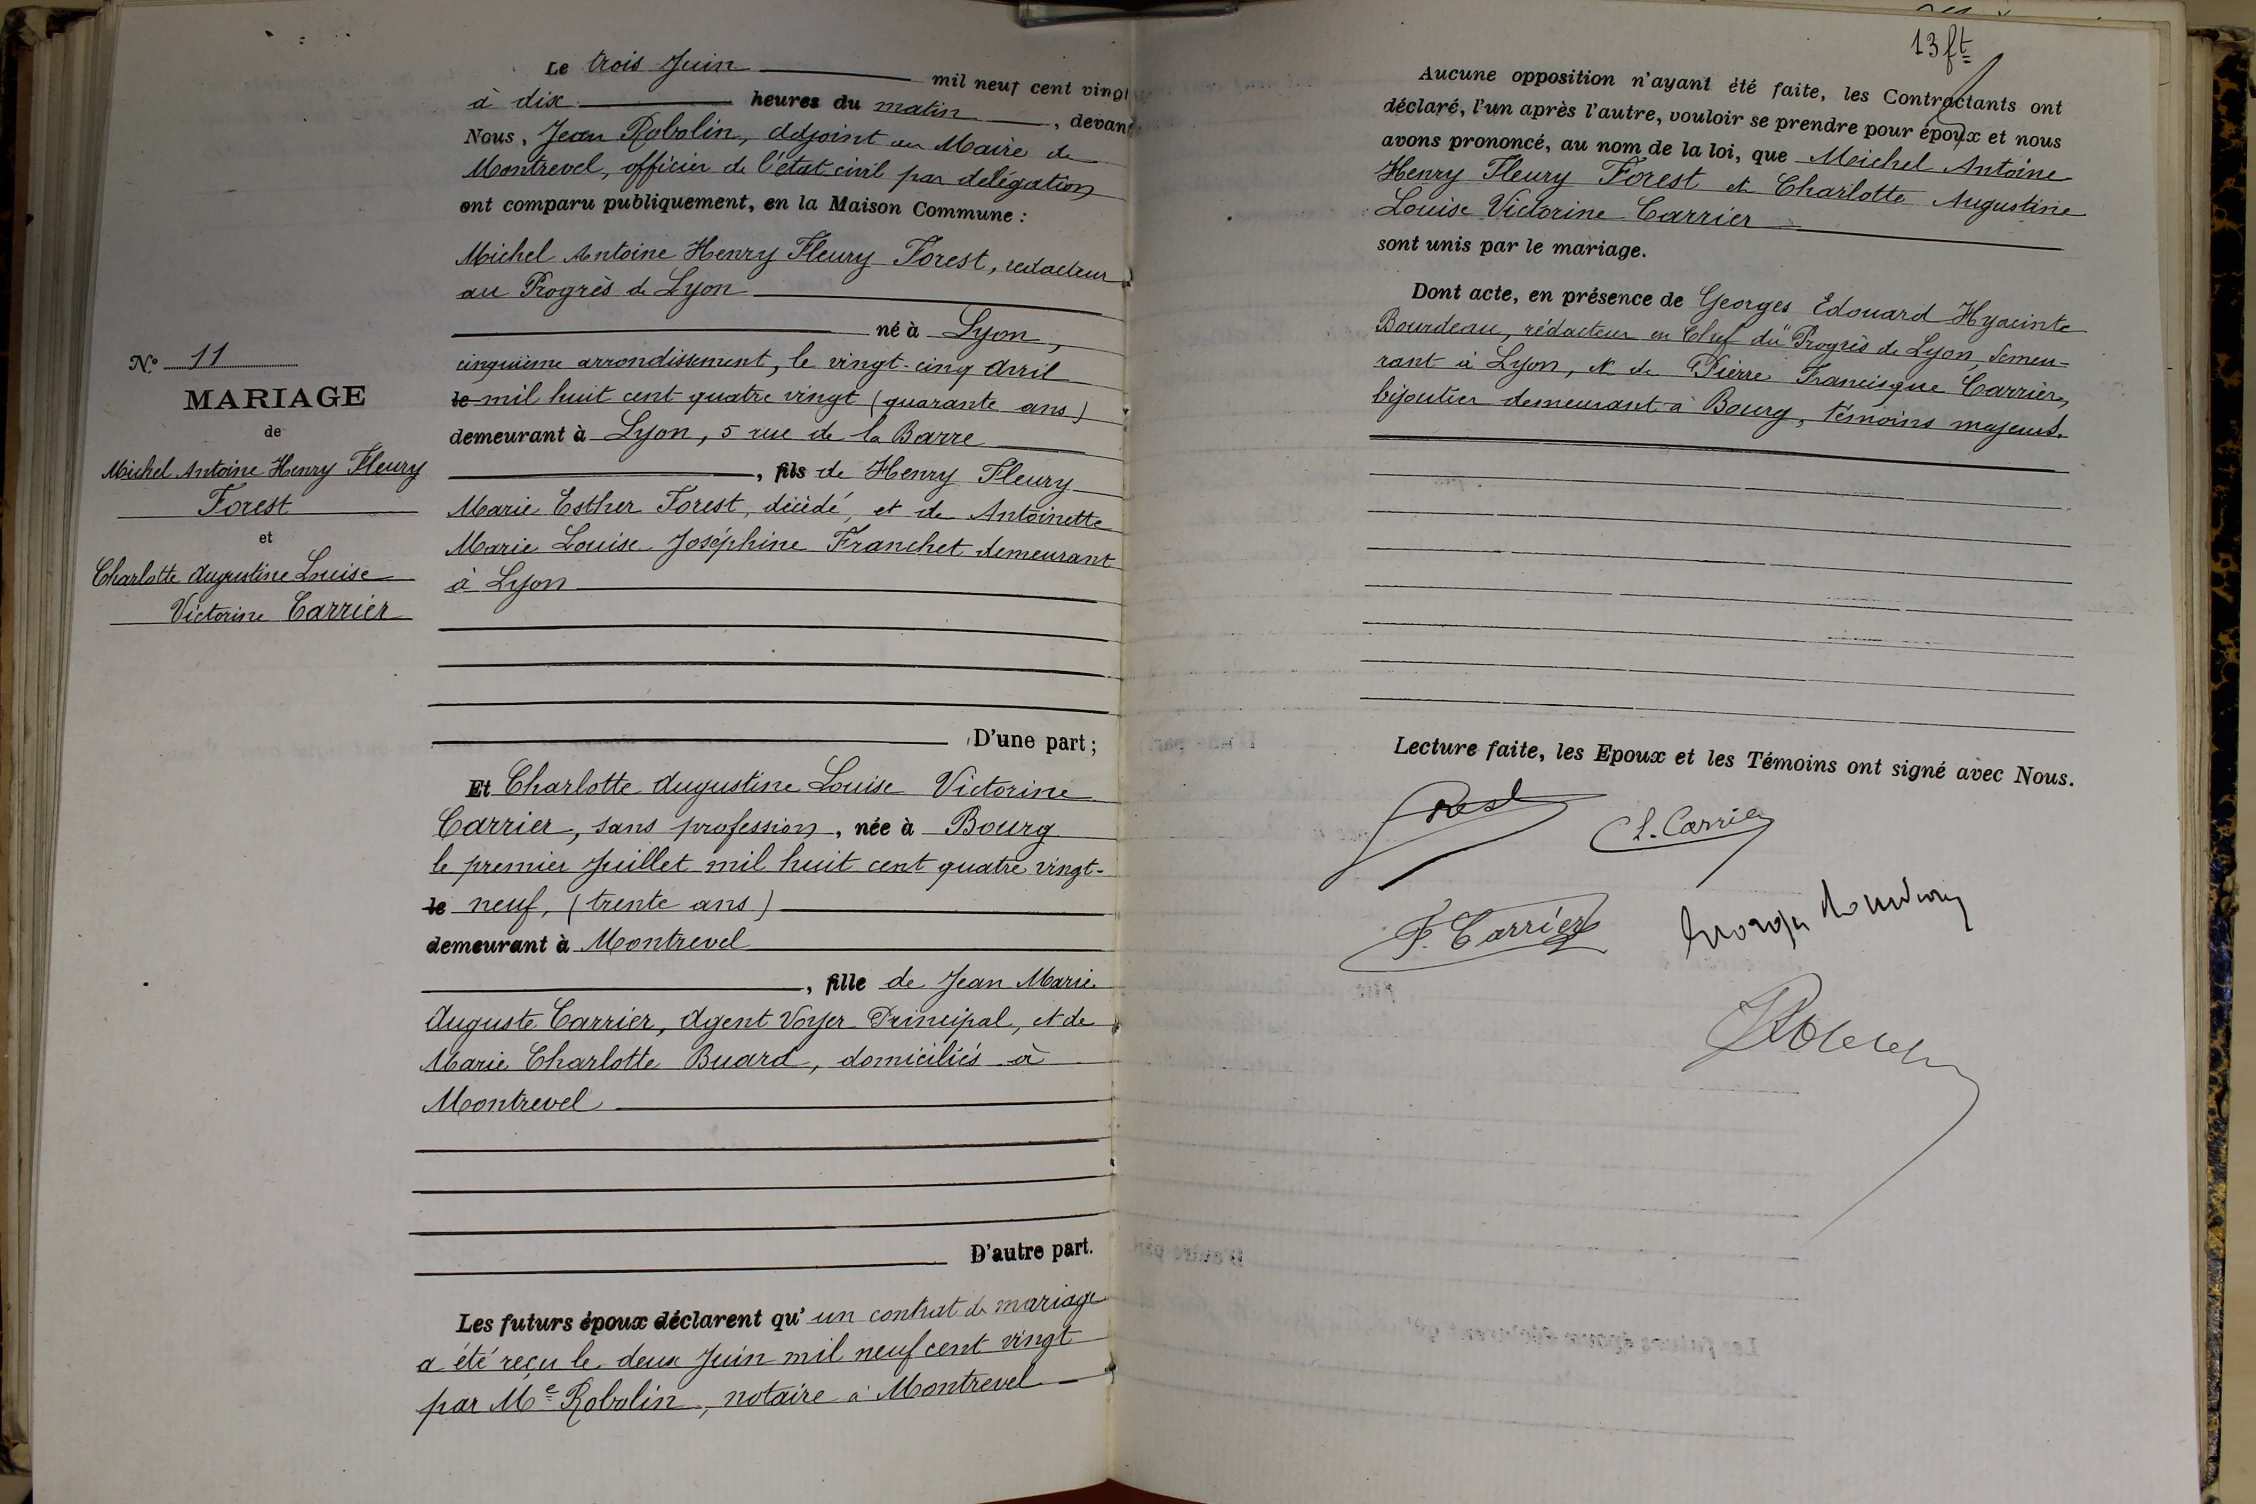 N° 11
MARIAGE
de
Michel Antoine Henry Fleury
Forest
et
Charlotte Augustine Louise
Victorine Carrier
Le trois Juin mil neuf cent vingt
à dix heures du matin, devant
Nous, Jean Robolin, Adjoint au Maire de
Montrevel, officier de l'état civil par délégation
ont comparu publiquement, en la Maison Commune :
Michel Antoine Henry Fleury Forest, rédacteur
au Progrès de Lyon
né à Lyon,
cinquième arrondissement, le vingt-cinq Avril
le mil huit cent quatre vingt (quarante ans)
demeurant à Lyon, 5 rue de la Barre
, fils de Henry Fleury
Marie Esther Forest, décédé, et de Antoinette
Marie Louise Joséphine Franchet demeurant
à Lyon
D'une part ;
Et Charlotte Augustine Louise Victorine
Carrier, sans profession, née à Bourg
le premier Juillet mil huit cent quatre vingt-
le neuf, (trente ans)
demeurant à Montrevel
, fille de Jean Marie
Auguste Carrier, Agent Voyer Principal, et de
Marie Charlotte Buard, domiciliés à
Montrevel
D'autre part.
Les futurs époux déclarent qu'un contrat de mariage
a été reçu le deux Juin mil neuf cent vingt
par Me Robolin, notaire à Montrevel
13 ft
Aucune opposition n'ayant été faite, les Contractants ont
déclaré, l'un après l'autre, vouloir se prendre pour époux et nous
avons prononcé, au nom de la loi, que Michel Antoine
Henry Fleury Forest et Charlotte Augustine
Louise Victorine Carrier
sont unis par le mariage.
Dont acte, en présence de Georges Edouard Hyacinte
Bourdeau, rédacteur en Chef du "Progrès de Lyon, demeu-
rant à Lyon, et de Pierre Francisque Carrier,
bijoutier demeurant à Bourg, témoins majeurs.
Lecture faite, les Epoux et les Témoins ont signé avec Nous.
Forest
Ch. Carrier
F. Carrier